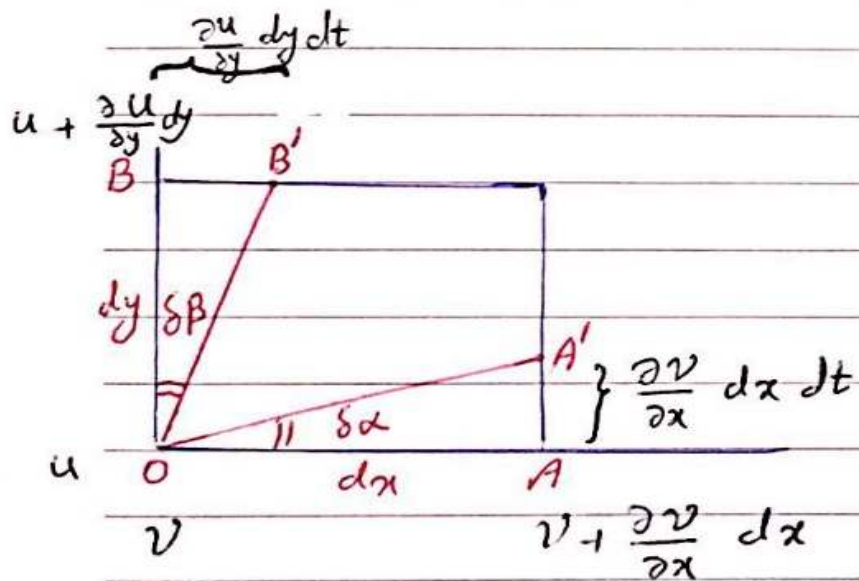 ∂u/∂y dy dt
u + ∂u/∂y dy
B B'
dy δβ
A'
} ∂v/∂x dx dt
δα
u O dx A
v v + ∂v/∂x dx